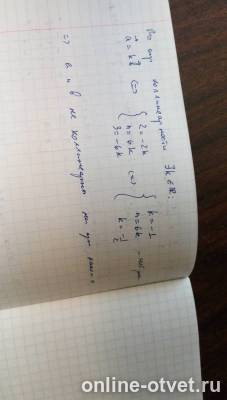 По опр коллинеарности ∃k∈ℝ:
a⃗ = k b⃗ ⇔ { 2 = -2k n = 6k 3 = -6k ⇔ { k = -1 n = 6k k = -1/2
⇒ a и b не коллинеарны ни при
online-otvet.ru